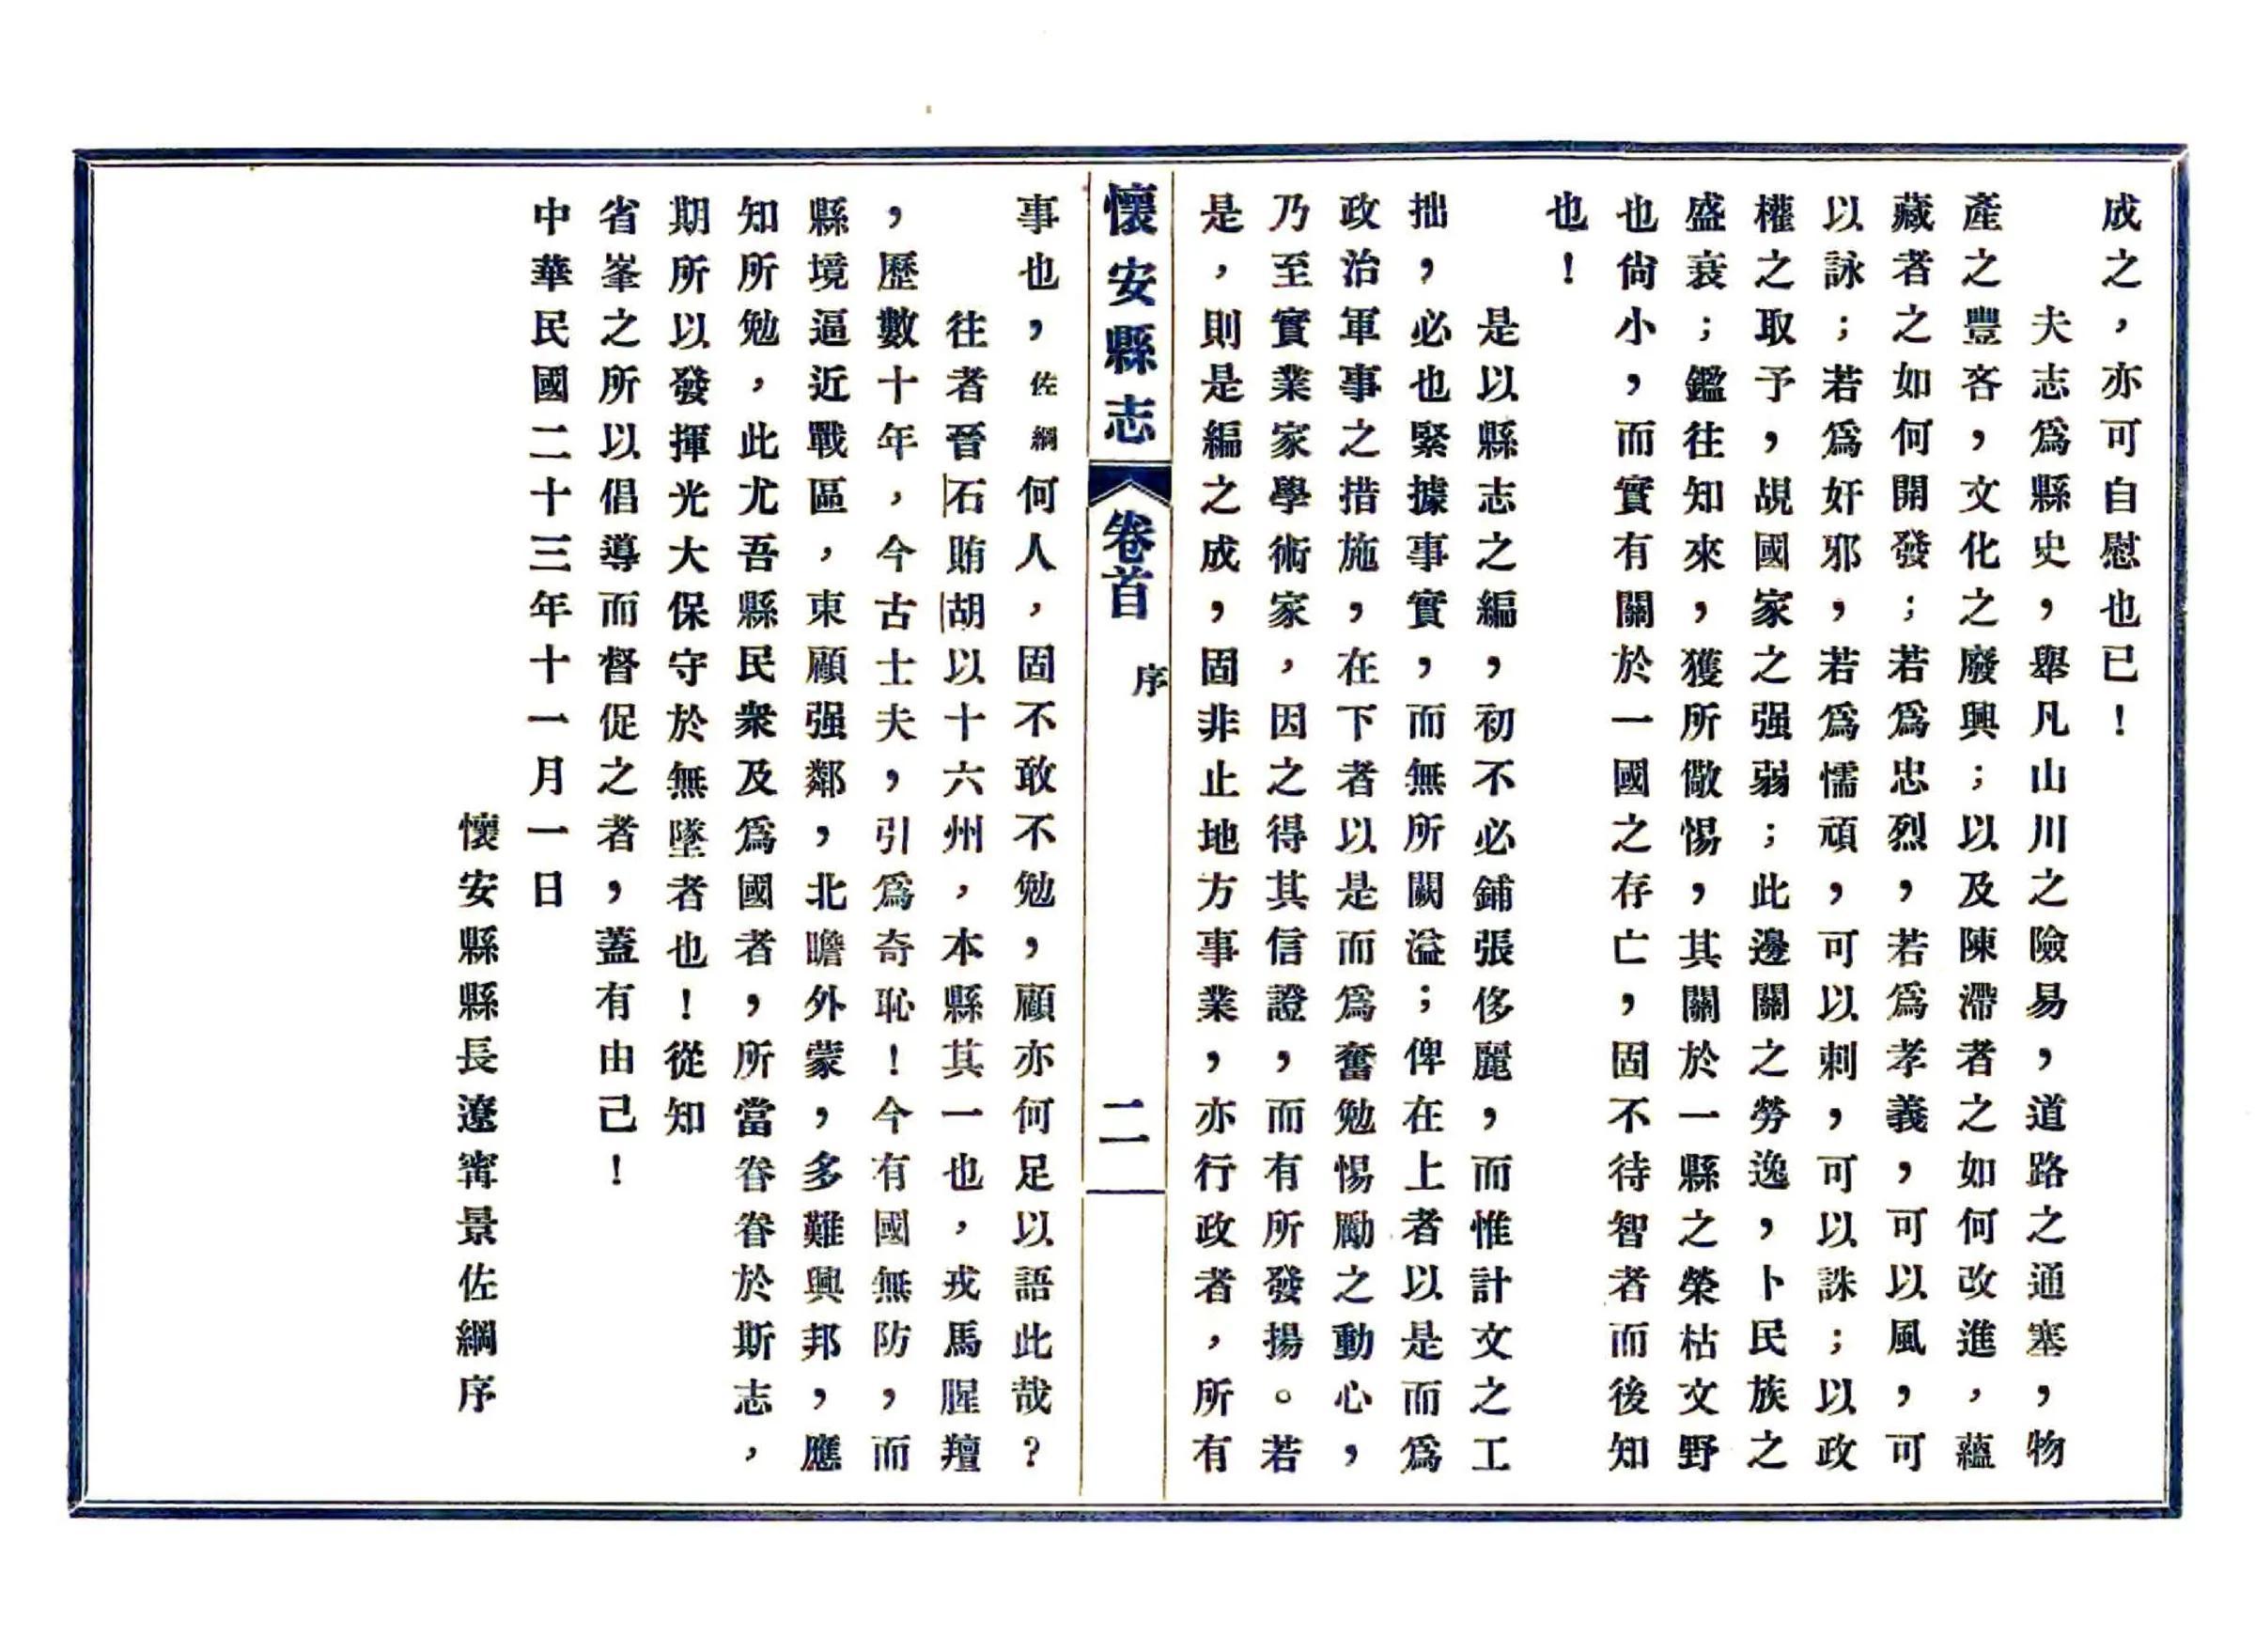 成之，亦可自慰也已！
夫志爲縣史，舉凡山川之險易，道路之通塞，物
產之豐吝，文化之廢興；以及陳滯者之如何改進，蘊
藏者之如何開發；若爲忠烈，若爲孝義，可以風，可
以詠；若爲奸邪，若爲懦頑，可以刺，可以誅；以政
權之取予，覘國家之强弱；此邊關之勞逸，卜民族之
盛衰；鑑往知來，獲所儆惕，其關於一縣之榮枯文野
也尙小，而實有關於一國之存亡，固不待智者而後知
也！
是以縣志之編，初不必鋪張侈麗，而惟計文之工
拙，必也緊據事實，而無所闕溢；俾在上者以是而爲
政治軍事之措施，在下者以是而爲奮勉惕勵之動心，
乃至實業家學術家，因之得其信證，而有所發揚。若
是，則是編之成，固非止地方事業，亦行政者，所有
懷安縣志 卷首 序 二
事也，佐綱何人，固不敢不勉，顧亦何足以語此哉？
往者晉石賄胡以十六州，本縣其一也，戎馬腥羶
，歷數十年，今古士夫，引爲奇恥！今有國無防，而
縣境逼近戰區，東顧强鄰，北瞻外蒙，多難興邦，應
知所勉，此尤吾縣民衆及爲國者，所當眷眷於斯志，
期所以發揮光大保守於無墜者也！從知
省峯之所以倡導而督促之者，蓋有由己！
中華民國二十三年十一月一日
懷安縣縣長遼甯景佐綱序